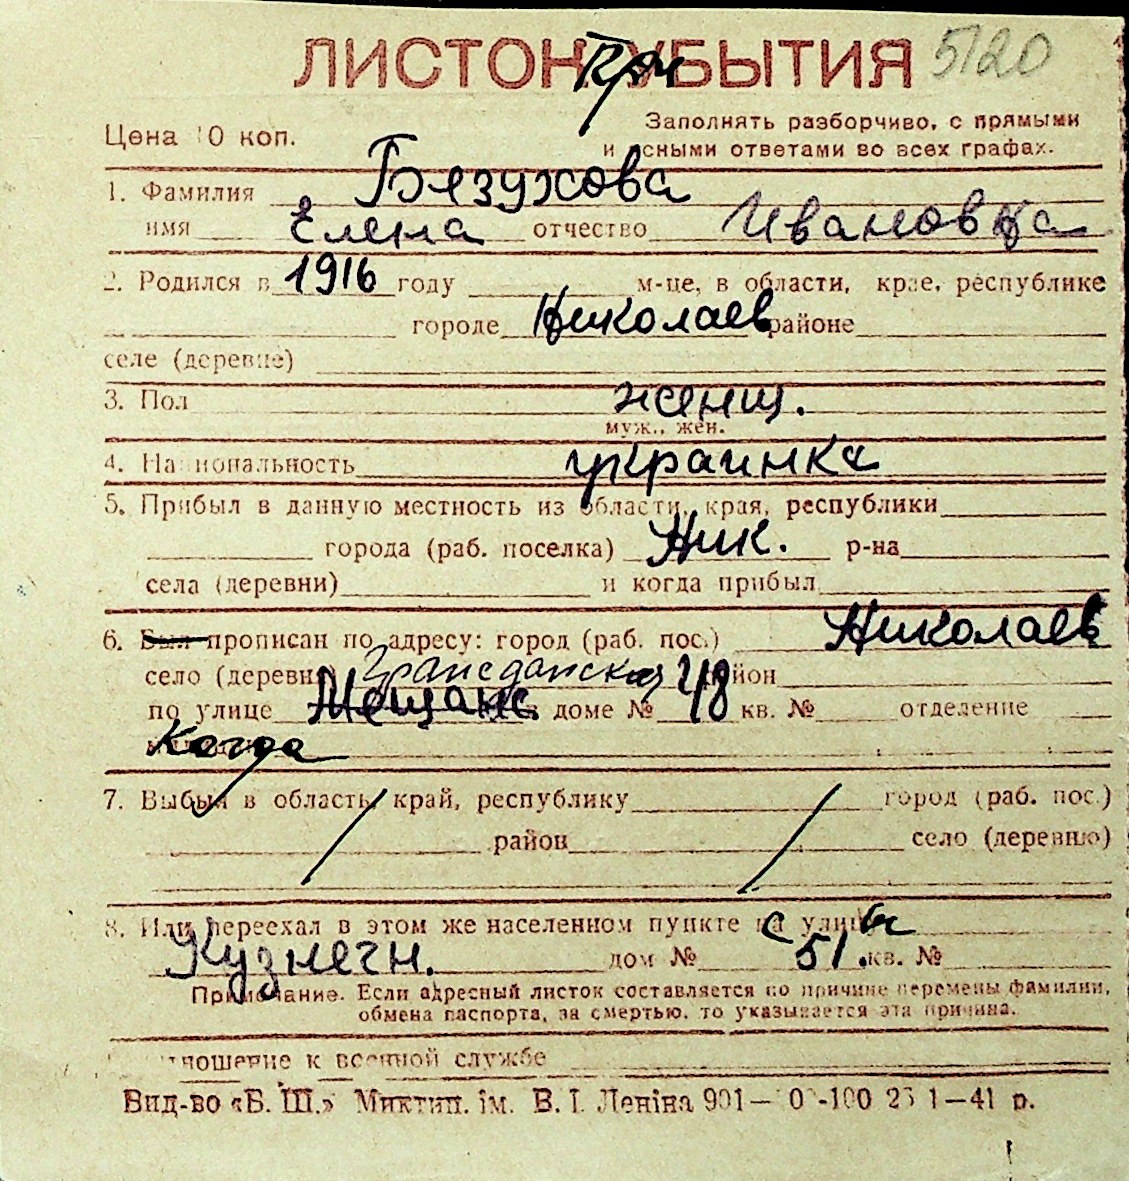 ЛИСТОК УБЫТИЯ 5120
При
Цена 10 коп.
Заполнять разборчиво, с прямыми
и ясными ответами во всех графах.
1. Фамилия Бязухова
имя Елена отчество Ивановна
2. Родился в 1916 году м-це, в области, крае, республике
городе Николаев районе
селе (деревне)
3. Пол женщ.
муж., жен.
4. Национальность украинка
5. Прибыл в данную местность из области, края, республики
города (раб. поселка) Ник. р-на
села (деревни) и когда прибыл
6. Был прописан по адресу: город (раб. пос.) Николаев
село (деревня) Гражданская 48 район
по улице Мещанс в доме № 48 кв. № отделение
Когда
7. Выбыл в область, край, республику город (раб. пос.)
район село (деревню)
8. Или переехал в этом же населенном пункте с улицы
Кузнечн. дом № 51. кв. №
Примечание. Если адресный листок составляется по причине перемены фамилии,
обмена паспорта, за смертью, то указывается эта причина.
Отношение к военной службе
Вид-во «Б. Ш.» Миктип. ім. В. І. Леніна 901— -100 1—41 р.